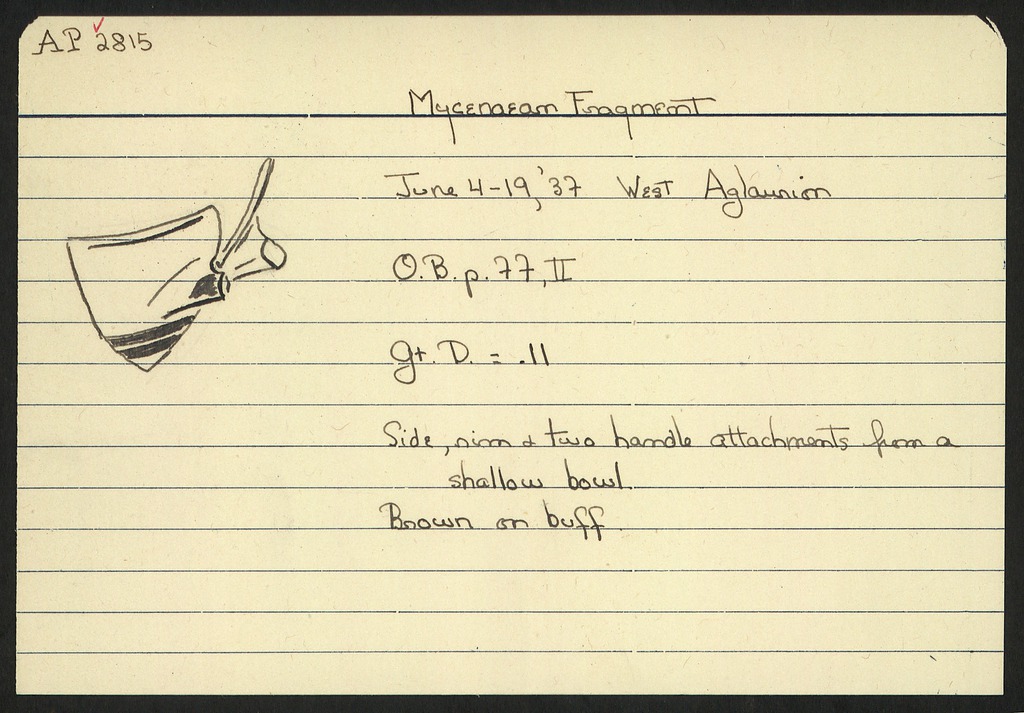 AP 2815
Mycenaean Fragment
June 4-19, '37 West Aglaurion
O.B. p. 77, II
Gt. D. = .11
Side, rim & two handle attachments from a
shallow bowl.
Brown on buff.